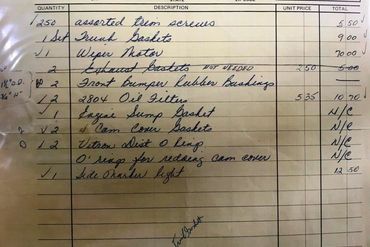 QUANTITY DESCRIPTION UNIT PRICE TOTAL
✓ 250 assorted trim screws 5 50
1 Set Trunk Gaskets 9 00
✓ 1 Wiper Motor 70 00
2 Exhaust Gaskets NOT NEEDED 2 50 5 00
2 Front Bumper Rubber Bushings
✓ 2 2804 Oil Filters 5 35 10 70
✓ 1 Engine Sump Gasket N/C
✓ 2 Cam Cover Gaskets N/C
0 ✓ 2 Vitron Dist O Ring N/C
O' ring for cam cover N/C
✓ 1 Side Marker Light 12 50